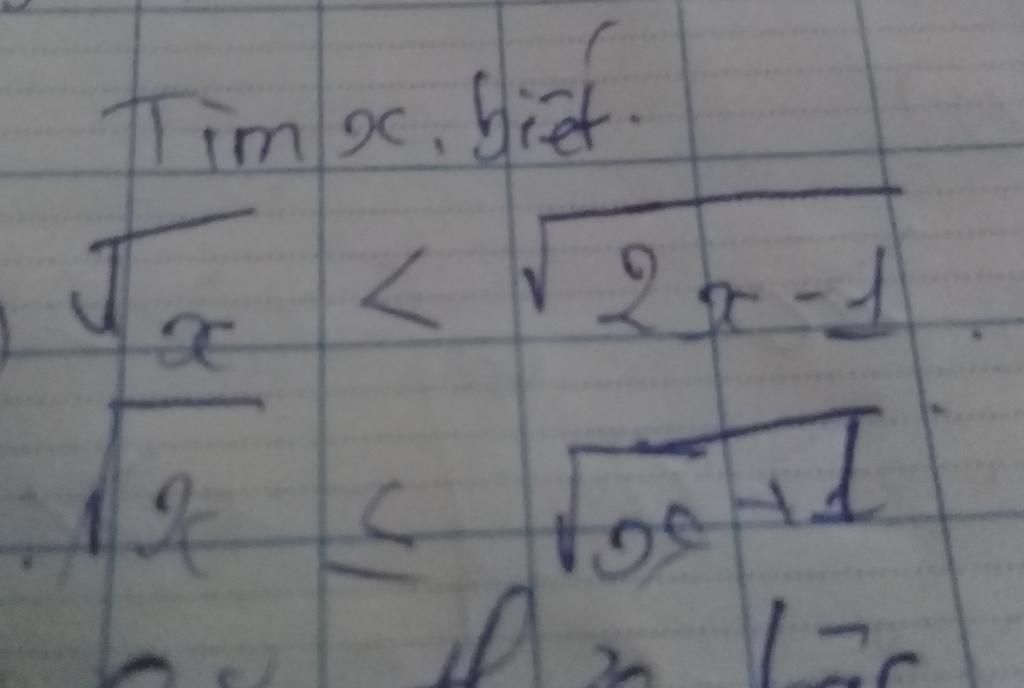 Tìm x, biết.
√x < √2x-1
√x ≤ √x+1